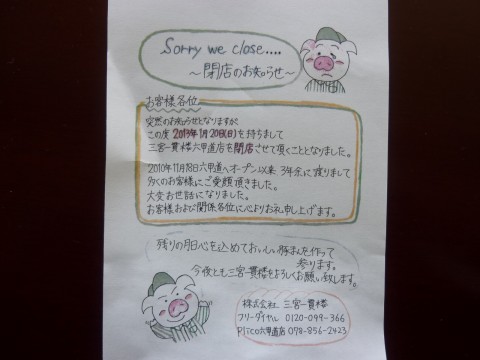 Sorry we close....
～閉店のお知らせ～
お客様各位
突然のお知らせとなりますが、
この度2013年1月20日(日)を持ちまして
三宮一貫樓六甲道店を閉店させて頂くこととなりました。
2010年11月18日六甲道へオープン以来 3年余に渡りまして
多くのお客様にご愛顧頂きました。
大変お世話になりました。
お客様および関係各位に心よりお礼申し上げます。
残りの月日心を込めておいしい豚まんを作って
参ります。
今後とも三宮一貫樓をよろしくお願い致します。
株式会社 三宮一貫樓
フリーダイヤル 0120-099-366
Plicco六甲道店 078-856-2423